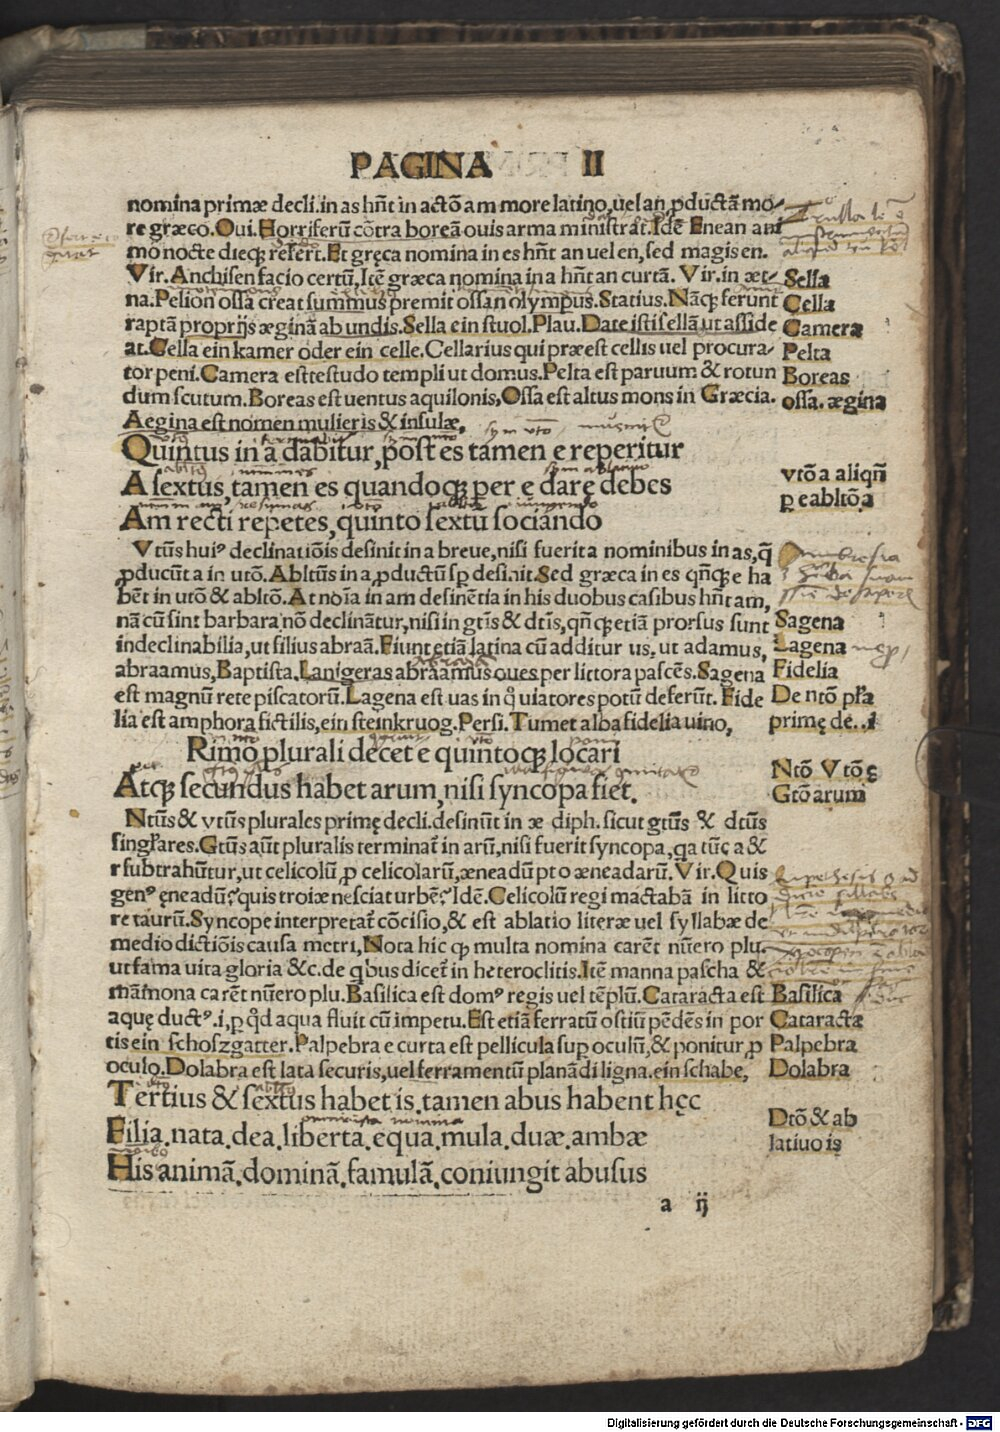 PAGINA II
nomina primæ decli.in as hn̄t in actō am more latino,uel an ꝓductā mo⸗
re græco.Oui.Horriferū cōtra boreā ouis arma ministrāt.Idē Enean ani
mo nocte dieqꝫ refert.Et gręca nomina in es hn̄t an uel en,sed magis en.
Vir.Anchisen facio certū,Itē græca nomina in a hn̄t an curtā. Vir.in æt⸗
na.Pelion ossa creat summus premit ossan olympus.Statius.Nāqꝫ ferunt
raptā proprijs æginā ab undis.Sella ein stuol.Plau.Date isti sellā,ut asside
at.Cella ein kamer oder ein celle.Cellarius qui præest cellis uel procura⸗
tor peni.Camera est testudo templi ut domus.Pelta est paruum & rotun
dum scutum.Boreas est uentus aquilonis,Ossa est altus mons in Græcia.
Aegina est nomen mulieris & insulæ,
Sella
Cella
Cameræ
Pelta
Boreas
ossa. ægina
Quintus in a dabitur,post es tamen e reperitur
A sextus,tamen es quandoqꝫ per e dare debes
Am recti repetes,quinto sextū sociando
vtō a aliqn̄
ꝑ e abltō a
Vtūs huiꝰ declinatiōis desinit in a breue,nisi fuerit a nominibus in as,q̄
ꝓducūt a in utō.Abltūs in a ꝓductū sꝑ desinit.Sed græca in es qn̄qꝫ e ha
bēt in utō & abltō.At noīa in am desinētia in his duobus casibus hn̄t am,
nā cū sint barbara nō declinātur,nisi in gtīs & dtīs,qn̄ qꝫ etiā prorsus sunt
indeclinabilia,ut filius abraā.Fiunt etiā latina cū additur us, ut adamus,
abraamus,Baptista.Lanigeras abraamus oues per littora pascēs.Sagena
est magnū rete piscatorū.Lagena est uas in q̊ uiatores potū deferūt. Fide
lia est amphora fictilis,ein steinkruog.Persi.Tumet alba fidelia uino,
Sagena
Lagena
Fidelia
De ntō pl̄ra
primę de..i
Rimō plurali decet e quintoqꝫ locari
Atqꝫ secundus habet arum,nisi syncopa fiet.
Ntō Vtō ę
Gtō arum
Ntūs & vtūs plurales primę decli.desinūt in æ diph.sicut gtūs & dtūs
singl̄ares.Gtūs aūt pluralis terminat̄ in arū,nisi fuerit syncopa,qa tūc a &
r subtrahūtur,ut celicolū ꝓ celicolarū,æneadū pto æneadarū.Vir.Quis
genꝰ ęneadū?quis troiæ nesciat urbē?Idē.Celicolū regi mactabā in litto
re taurū.Syncope interpretat̄ cōcisio,& est ablatio literæ uel syllabæ de
medio dictiōis causa metri,Nota hic qꝫ multa nomina carēt nūero plu.
ut fama uita gloria &c.de qbus dicet̄ in heteroclitis.Itē manna pascha &
māmona carēt nūero plu.Basilica est domꝰ regis uel tēplū.Cataracta est
aquę ductꝰ.i,ꝑ q̊d aqua fluit cū impetu.Est etiā ferratū ostiū pēdēs in por
tis ein schoszgatter.Palpebra e curta est pellicula suꝑ oculū,& ponitur,ꝓ
oculo.Dolabra est lata securis,uel ferramentū planādi ligna.ein schabe,
Basilica
Cataractæ
Palpebra
Dolabra
Tertius & sextus habet is.tamen abus habent hęc
Filia.nata.dea.liberta.equa.mula.duæ.ambæ
His animā.dominā.famulā.coniungit abusus
Dtō & ab
latiuo is
a ij
Digitalisierung gefördert durch die Deutsche Forschungsgemeinschaft - DFG